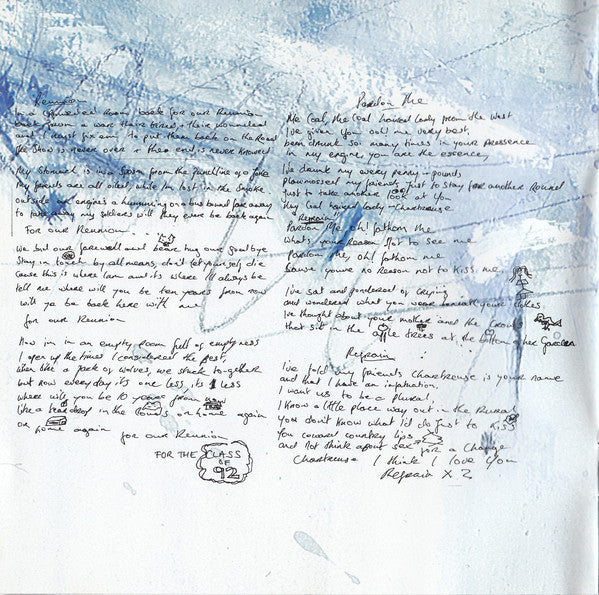 Reunion
In a crowded Room back for our Reunion
back from a war their tired & their wounded
and I must fix em to put them back on the Road
the show is never over & the end is never known
My stomach is in a spasm from the punchline of a joke
My friends are all oiled while I'm lost in the smoke
outside an engines a humming on a bus bound far away
to take away my soldiers will they ever be back again
For our Reunion....
We bid our farewell and bear hug our goodbye
Stay in touch by all means, don't let yourself die
Cause this is where I am and its where I'll always be
tell me where will you be ten years from now
will ya be back here with me
for our Reunion
Now im in an empty Room full of emptyness
I open up the times I considered the best,
when like a pack of wolves, we stuck together
but now every day it's one less, it's 1 less
where will you be 10 years from now
like a in the clouds or home again
or home again
for our Reunion
FOR THE CLASS
OF
92
Pardon Me
Me Coal, the Coal haired lady from the West
I've given you ooh! me very best,
been drunk so many times in your pressence
in my engine you are the essence,
I've drunk my every penny - pounds
my friends, just to stay for another Round
Just to take another look at You
My Coal haired lady - Chartreuse
Refrain:
Pardon Me, oh! fathom me
What's your reason Not to see me
Pardon Me, oh! fathom me
'Cause you've no reason not to kiss me
I've sat and pondered of crying
and wondered what you wear beneath your clothes
I've thought about your mother and the Crows
that sit in the apple trees at the bottom of her Garden
Refrain
I've told my friends Chartreuse is your name
and that I have an infatuation,
I want us to be a Plural,
I know a little place way out in the Rural
You don't know what I'd do just to kiss
You coward country lips
and not think about sex for a Change
Chartreuse I think I love You
Refrain X 2